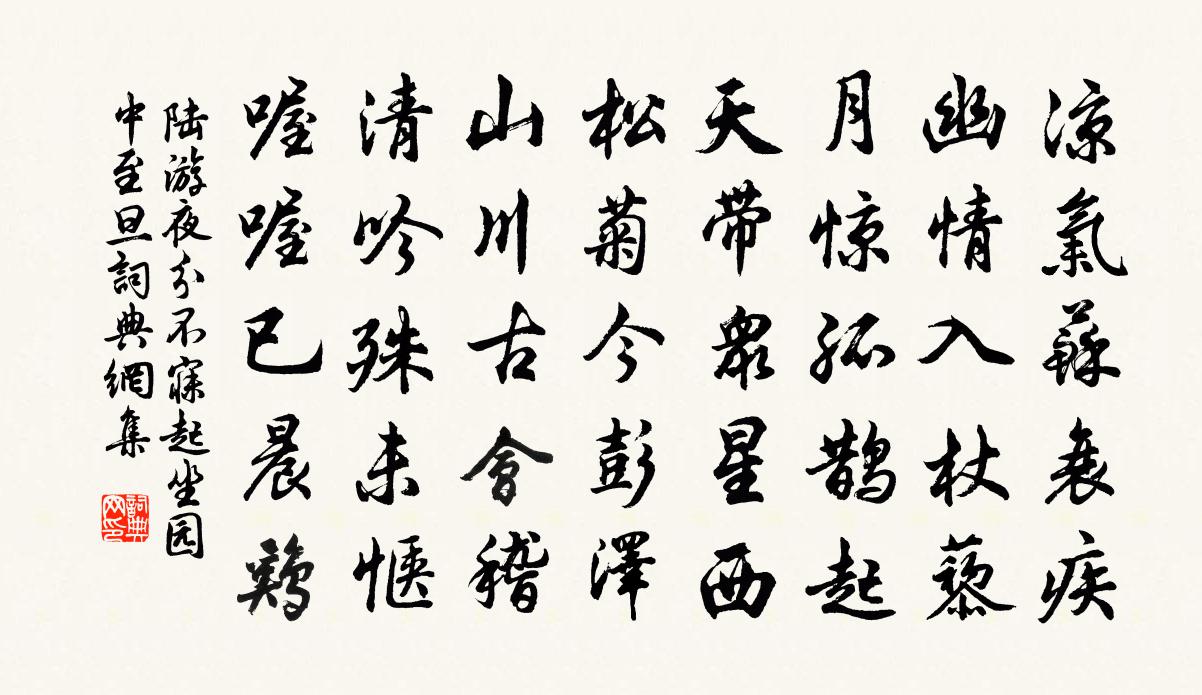 凉氣蘇衰疾
幽情入杖藜
月惊孤鹊起
天带眾星西
松菊今彭澤
山川古會稽
清吟殊未惬
喔喔已晨鷄
陆游夜分不寐起坐园
中至旦詞典網集
詞典
网印